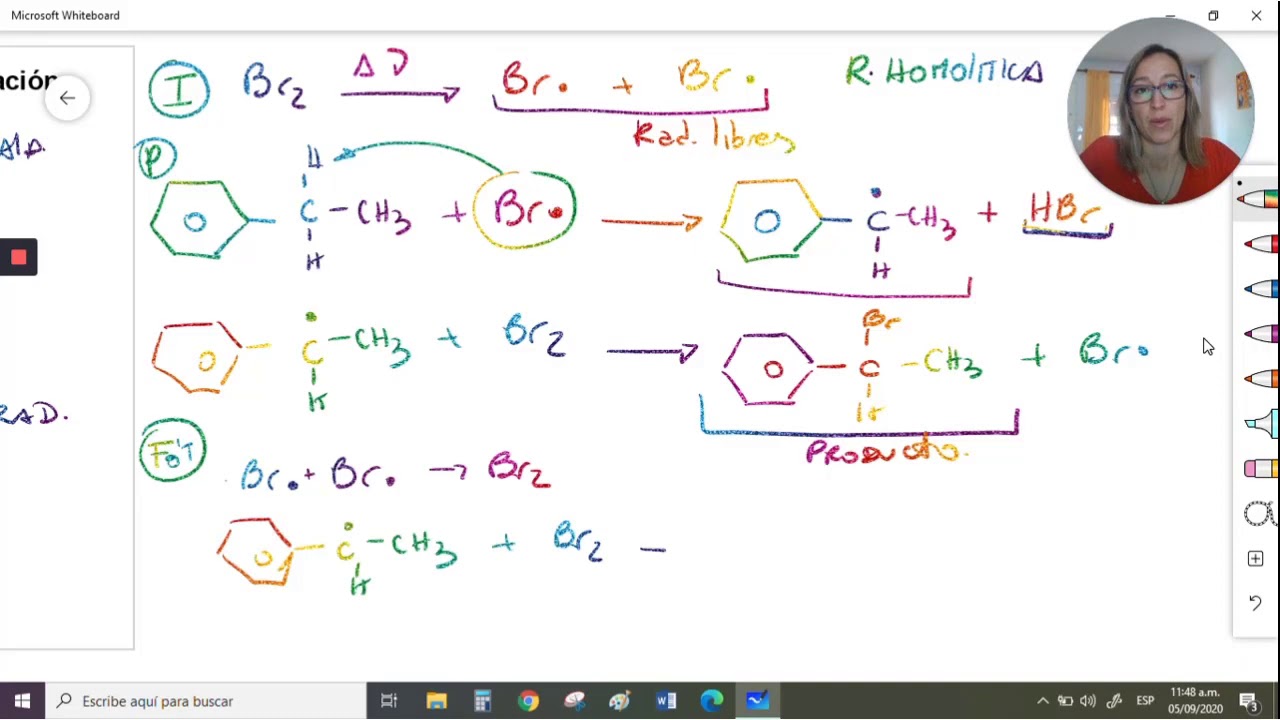 Microsoft Whiteboard
ación
I Br2 Δ Br• + Br• R. HOMOLITICA
Rad. libres
P
H
C -CH3 + Br• → •C-CH3 + HBr
H H
•C -CH3 + Br2 → Br C -CH3 + Br•
H H
PRODUCTO.
RAD.
F o T
Br• + Br• → Br2
•C -CH3 + Br2 —
H
Escribe aquí para buscar
ESP
11:48 a.m.
05/09/2020
3